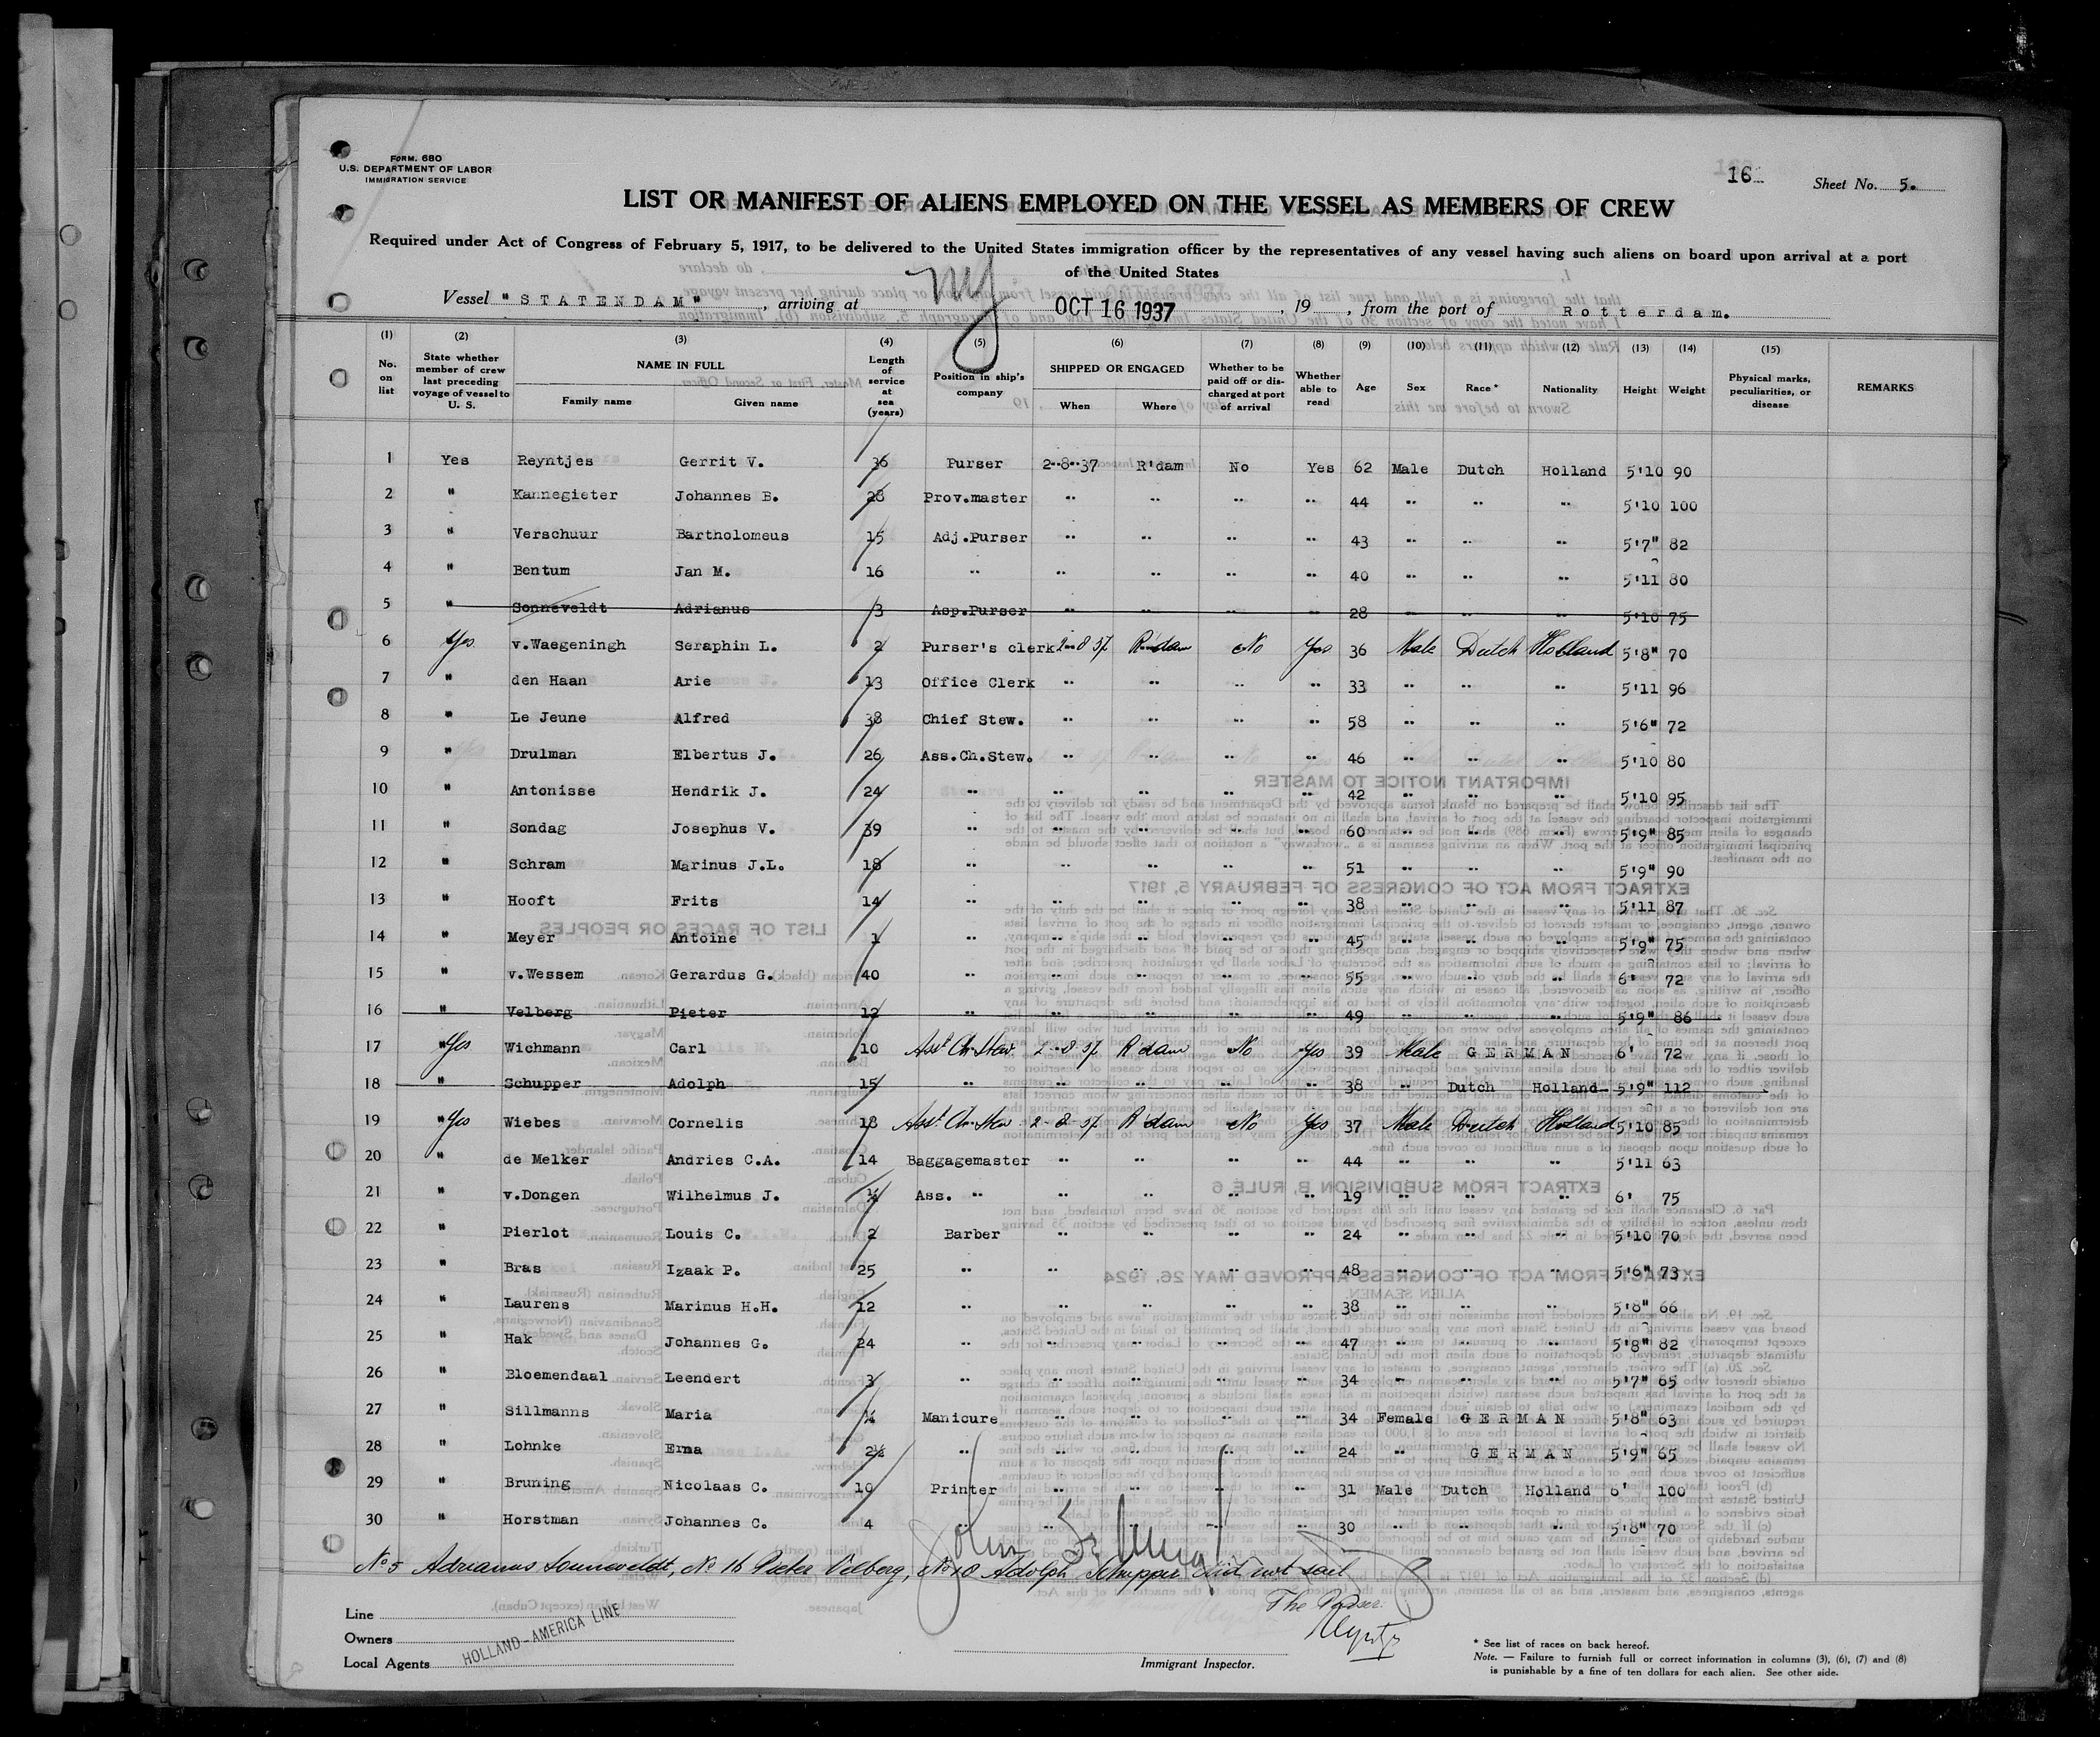 FORM. 680
U.S. DEPARTMENT OF LABOR
IMMIGRATION SERVICE
16
Sheet No. 5.
LIST OR MANIFEST OF ALIENS EMPLOYED ON THE VESSEL AS MEMBERS OF CREW
Required under Act of Congress of February 5, 1917, to be delivered to the United States immigration officer by the representatives of any vessel having such aliens on board upon arrival at a port
of the United States
Vessel "STATENDAM", arriving at NY OCT 16 1937, 19 , from the port of Rotterdam.
(1) (2) (3) (4) (5) (6) (7) (8) (9) (10) (11) (12) (13) (14) (15)
No. on list State whether member of crew last preceding voyage of vessel to U. S. NAME IN FULL Family name Given name Length of service at sea (years) Position in ship's company SHIPPED OR ENGAGED When Where Whether to be paid off or discharged at port of arrival Whether able to read Age Sex Race* Nationality Height Weight Physical marks, peculiarities, or disease REMARKS
1 Yes Reyntjes Gerrit V. 36 Purser 2-8-37 R'dam No Yes 62 Male Dutch Holland 5'10 90
2 " Kannegieter Johannes B. 28 Prov.master " " " " 44 " " " 5'10 100
3 " Verschuur Bartholomeus 15 Adj.Purser " " " " 43 " " " 5'7" 82
4 " Bentum Jan M. 16 " " " " " 40 " " " 5'11 80
5 " Sonneveldt Adrianus 3 Asp.Purser " " " " 28 " " " 5'10 75
6 Yes v.Waegeningh Seraphin L. 2 Purser's clerk 2-8 37 R'dam No Yes 36 Male Dutch Holland 5'8" 70
7 " den Haan Arie 13 Office Clerk " " " " 33 " " " 5'11 96
8 " Le Jeune Alfred 38 Chief Stew. " " " " 58 " " " 5'6" 72
9 " Drulman Elbertus J. 26 Ass.Ch.Stew. " " " " 46 " " " 5'10 80
10 " Antonisse Hendrik J. 24 " " " " " 42 " " " 5'10 95
11 " Sondag Josephus V. 39 " " " " " 60 " " " 5'9" 85
12 " Schram Marinus J.L. 18 " " " " " 51 " " " 5'9" 90
13 " Hooft Frits 14 " " " " " 38 " " " 5'11 87
14 " Meyer Antoine 1 " " " " " 45 " " " 5'9" 75
15 " v.Wessem Gerardus G. 40 " " " " " 55 " " " 6' 72
16 " Velberg Pieter 12 " " " " " 49 " " " 5'9" 86
17 " Yes Wichmann Carl 10 Asst Ch. Stew 2-8-37 R'dam No Yes 39 Male GERMAN 6' 72
18 " Schupper Adolph 15 " " " " " 38 " Dutch Holland 5'9" 112
19 " Yes Wiebes Cornelis 18 Asst Ch. Stew 2-8-37 R'dam No Yes 37 Male Dutch Holland 5'10 85
20 " de Melker Andries C.A. 14 Baggagemaster " " " " 44 " " " 5'11 63
21 " v.Dongen Wilhelmus J. ¼ Ass. " " " " " 19 " " " 6' 75
22 " Pierlot Louis C. 2 Barber " " " " 24 " " " 5'10 70
23 " Bras Izaak P. 25 " " " " " 48 " " " 5'6" 73
24 " Laurens Marinus H.H. 12 " " " " " 38 " " " 5'8" 66
25 " Hak Johannes G. 24 " " " " " 47 " " " 5'8" 82
26 " Bloemendaal Leendert 3 " " " " " 34 " " " 5'7" 65
27 " Sillmanns Maria ¼ Manicure " " " " 34 Female GERMAN 5'8" 63
28 " Lohnke Erna 2½ " " " " " 24 " GERMAN 5'9" 65
29 " Bruning Nicolaas C. 10 Printer " " " " 31 Male Dutch Holland 6' 100
30 " Horstman Johannes C. 4 " " " " " 30 " " " 5'8" 70
No 5 Adrianus Sonneveldt, No 16 Pieter Velberg, No 18 Adolph Schupper did not sail
The Purser.
Line
Owners HOLLAND-AMERICA LINE
Local Agents
Immigrant Inspector.
* See list of races on back hereof.
Note. — Failure to furnish full or correct information in columns (3), (6), (7) and (8)
is punishable by a fine of ten dollars for each alien. See other side.